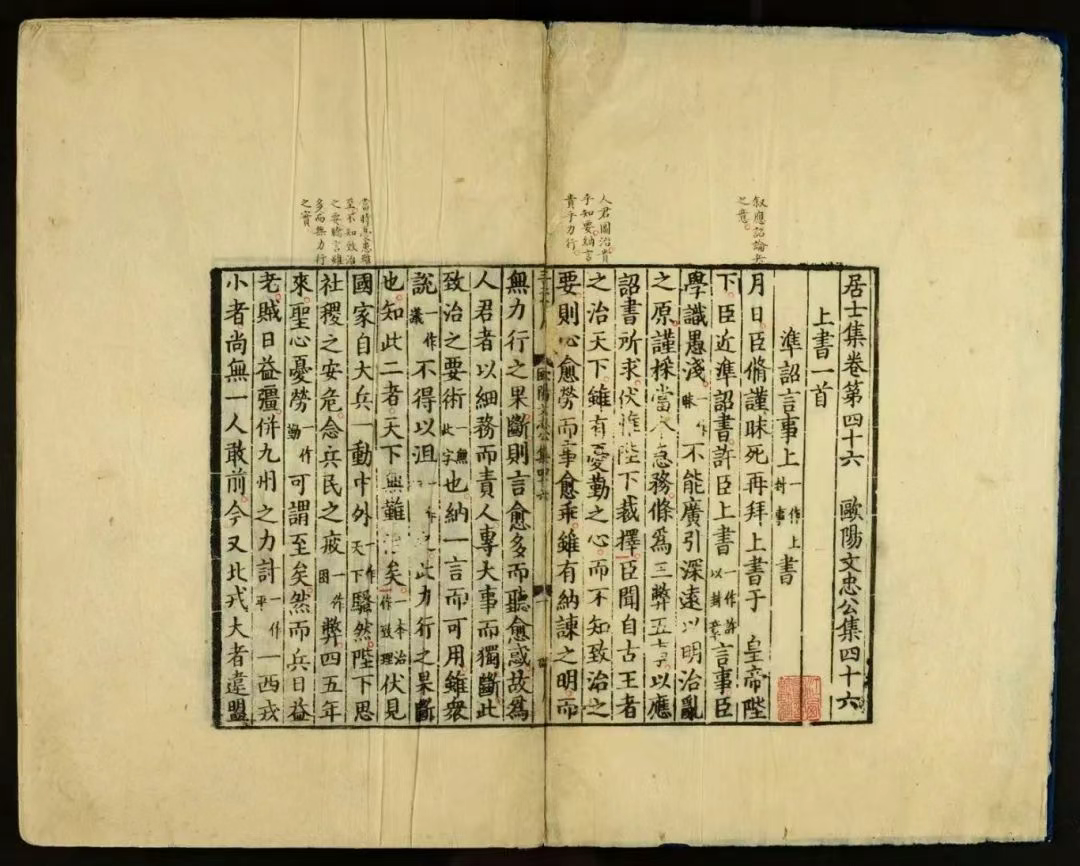 居士集卷第四十六　歐陽文忠公集四十六
上書一首
準詔言事上一作上封事書
月日臣脩謹昧死再拜上書于　皇帝陛
下臣近準詔書許臣上書一作許以封章言事臣
學識愚淺一作昧不能廣引深遠以明治亂
之原謹採當今急務條為三弊五事以應
詔書所求伏惟陛下裁擇臣聞自古王者
之治天下雖有憂勤之心而不知致治之
要則心愈勞而事愈乖雖有納諫之明而
歐陽文忠公集四十六
一
無力行之果斷則言愈多而聽愈惑故為
人君者以細務而責人專大事而獨斷此
致治之要術一無此字也納一言而可用雖衆
說一作議不得以沮一作之此力行之果斷
也知此二者天下無難治矣一本作治致理伏見
國家自大兵一動中外一作天下騷然陛下思
社稷之安危念兵民之疲一作困弊四五年
來聖心憂勞一作勤可謂至矣然而兵日益
老賊日益彊併九州之力計一作平一西戎
小者尚無一人敢前今又北戎大者違盟
叙應詔論
之意
人君圖治貴
乎知要納言
貴乎力行
當時
至不知致治
之要聽言雖
多而無力行
之實